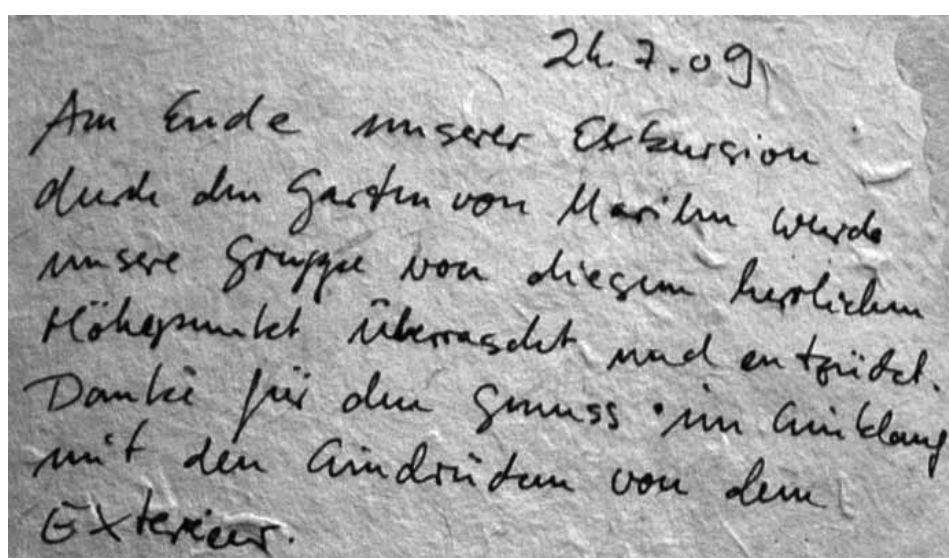 24.7.09
Am Ende unserer Exkursion
durch den Garten von Marihn wurde
unsere Gruppe von diesem herrlichen
Höhepunkt überrascht und entzückt.
Danke für den Genuss im Einklang
mit den Eindrücken von dem
Exterieur.